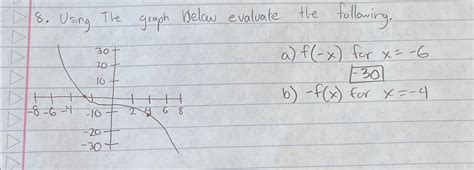 8. Using The graph below evaluate the following.
a) f(-x) for x = -6
-30
b) -f(x) for x = -4
30
20
10
-8 -6 -4 2 4 6 8
-10
-20
-30